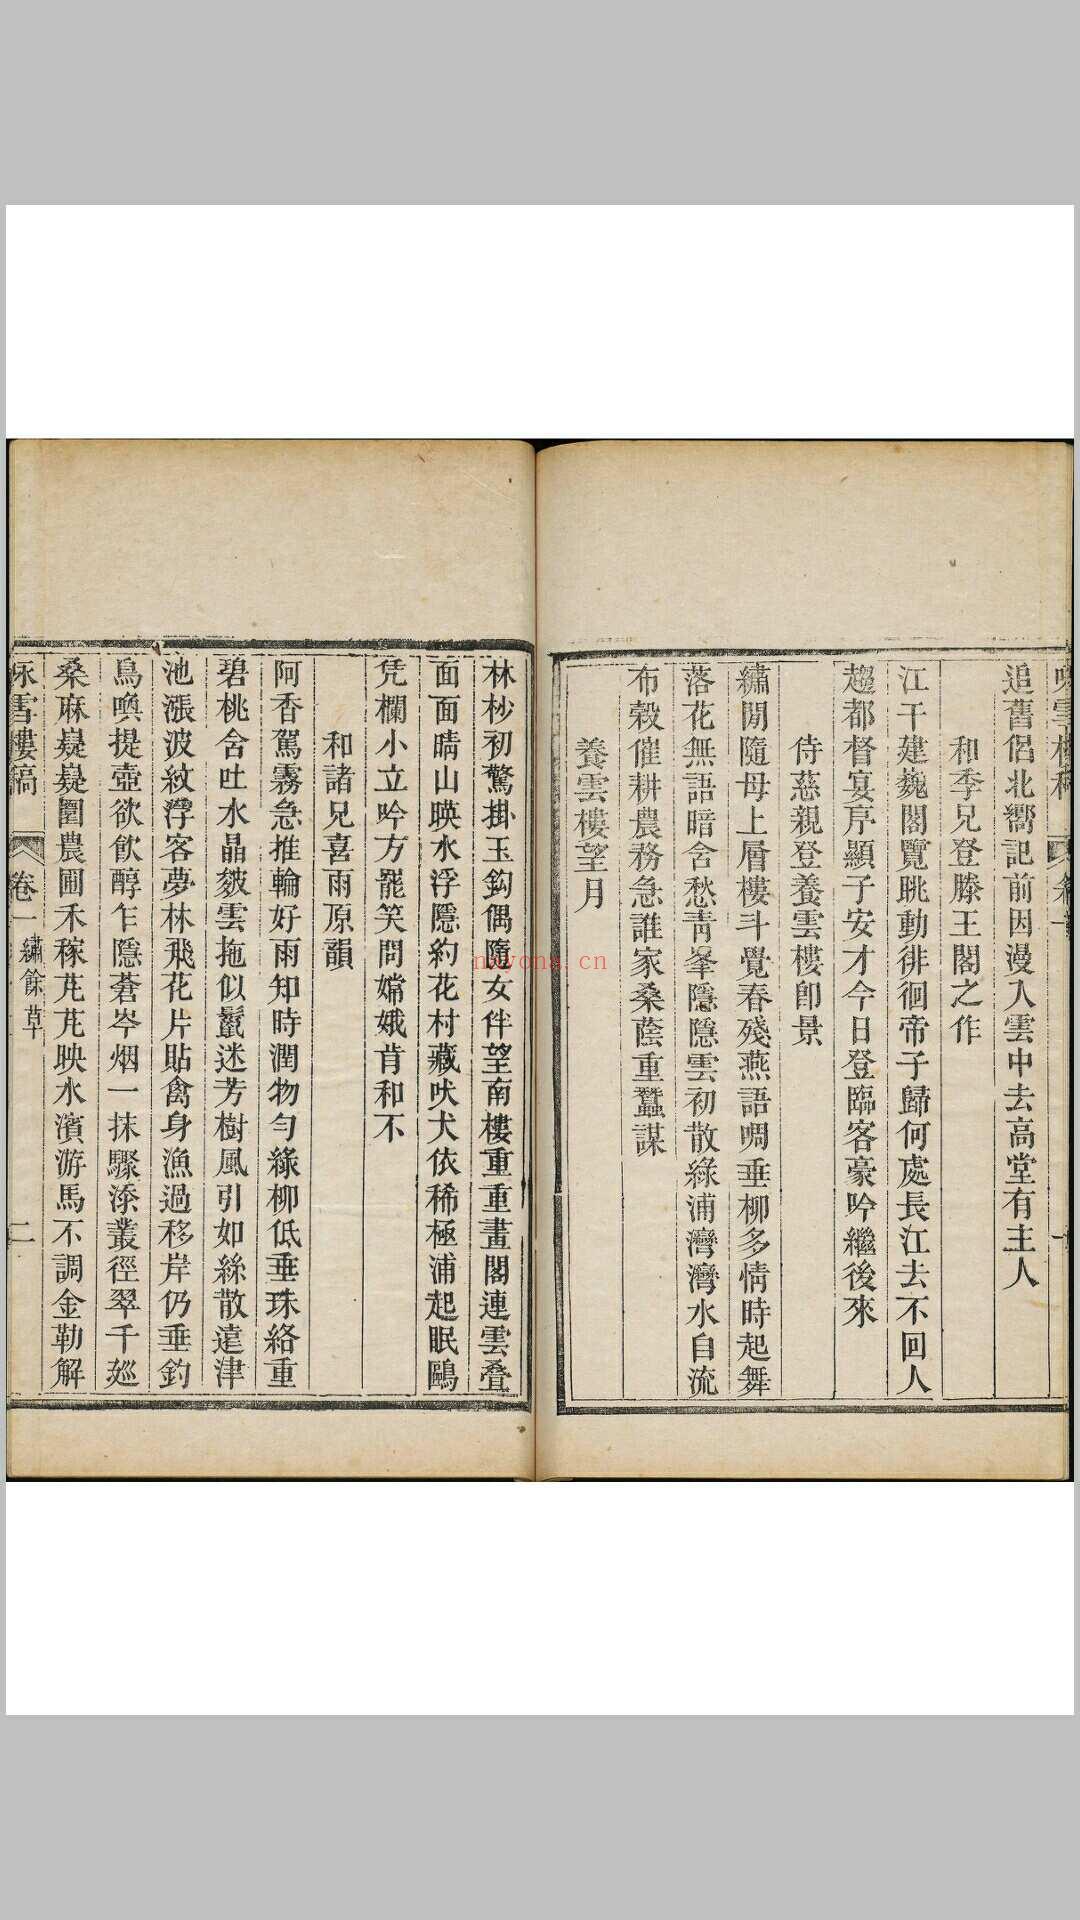 追舊侶北嚮記前因漫入雲中去高堂有主人
和季兄登滕王閣之作
江干建巍閣覽眺動徘徊帝子歸何處長江去不回人
趨都督宴序顯子安才今日登臨客豪吟繼後來
侍慈親登養雲樓卽景
繡閒隨母上層樓斗覺春殘燕語啁垂柳多情時起舞
落花無語暗含愁靑峯隱隱雲初散綠浦灣灣水自流
布穀催耕農務急誰家桑蔭重蠶謀
養雲樓望月
林杪初驚掛玉鈎偶隨女伴望南樓重重畫閣連雲疊
面面晴山暎水浮隱約花村藏吠犬依稀極浦起眠鷗
凭欄小立吟方罷笑問嫦娥肯和不
和諸兄喜雨原韻
阿香駕霧急推輪好雨知時潤物勻綠柳低垂珠絡重
碧桃含吐水晶皴雲拖似鬣迷芳樹風引如絲散遠津
池漲波紋浮客夢林飛花片貼禽身漁過移岸仍垂釣
鳥喚提壺欲飮醇乍隱蒼岑烟一抹驟添叢徑翠千廵
桑麻嶷嶷圍農圃禾稼芃芃映水濱游馬不調金勒解
咏雪樓稿 卷一 繡餘草 二
nxyona.cn